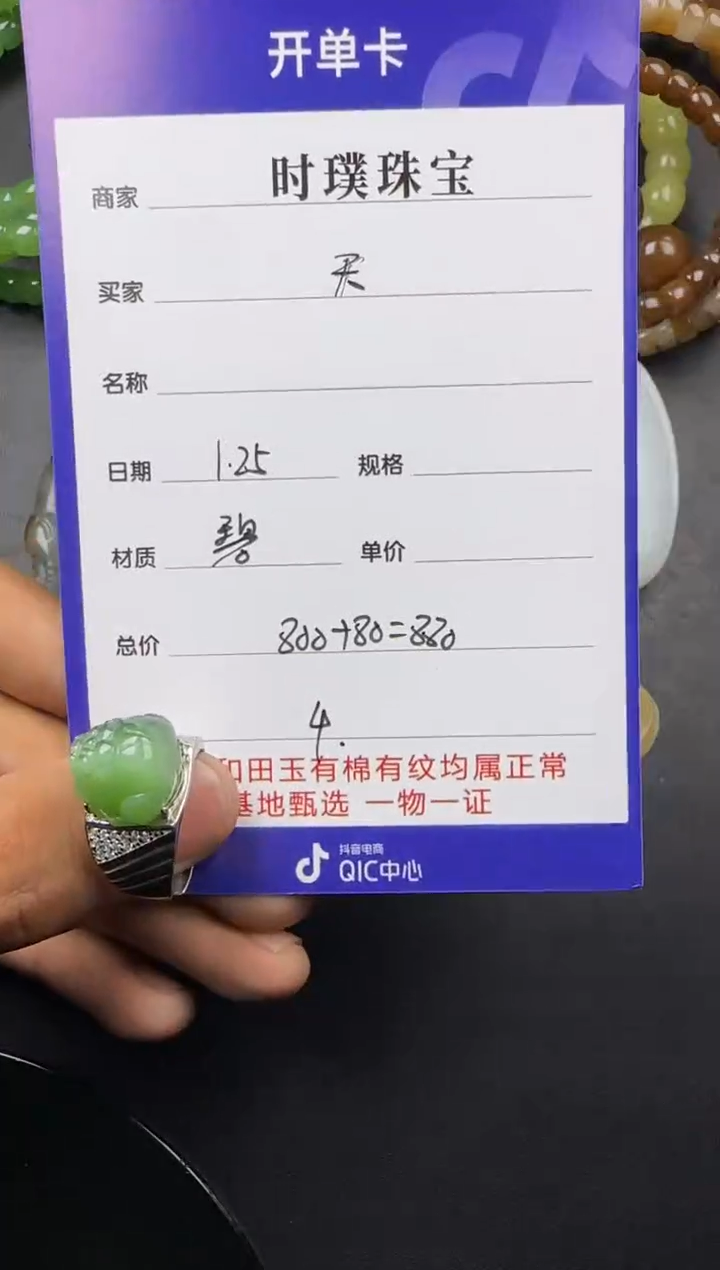 开单卡
商家 时璞珠宝
买家 买
名称
日期 1.25 规格
材质 碧 单价
总价 800+80=880
4.
和田玉有棉有纹均属正常
基地甄选 一物一证
抖音电商
QIC中心